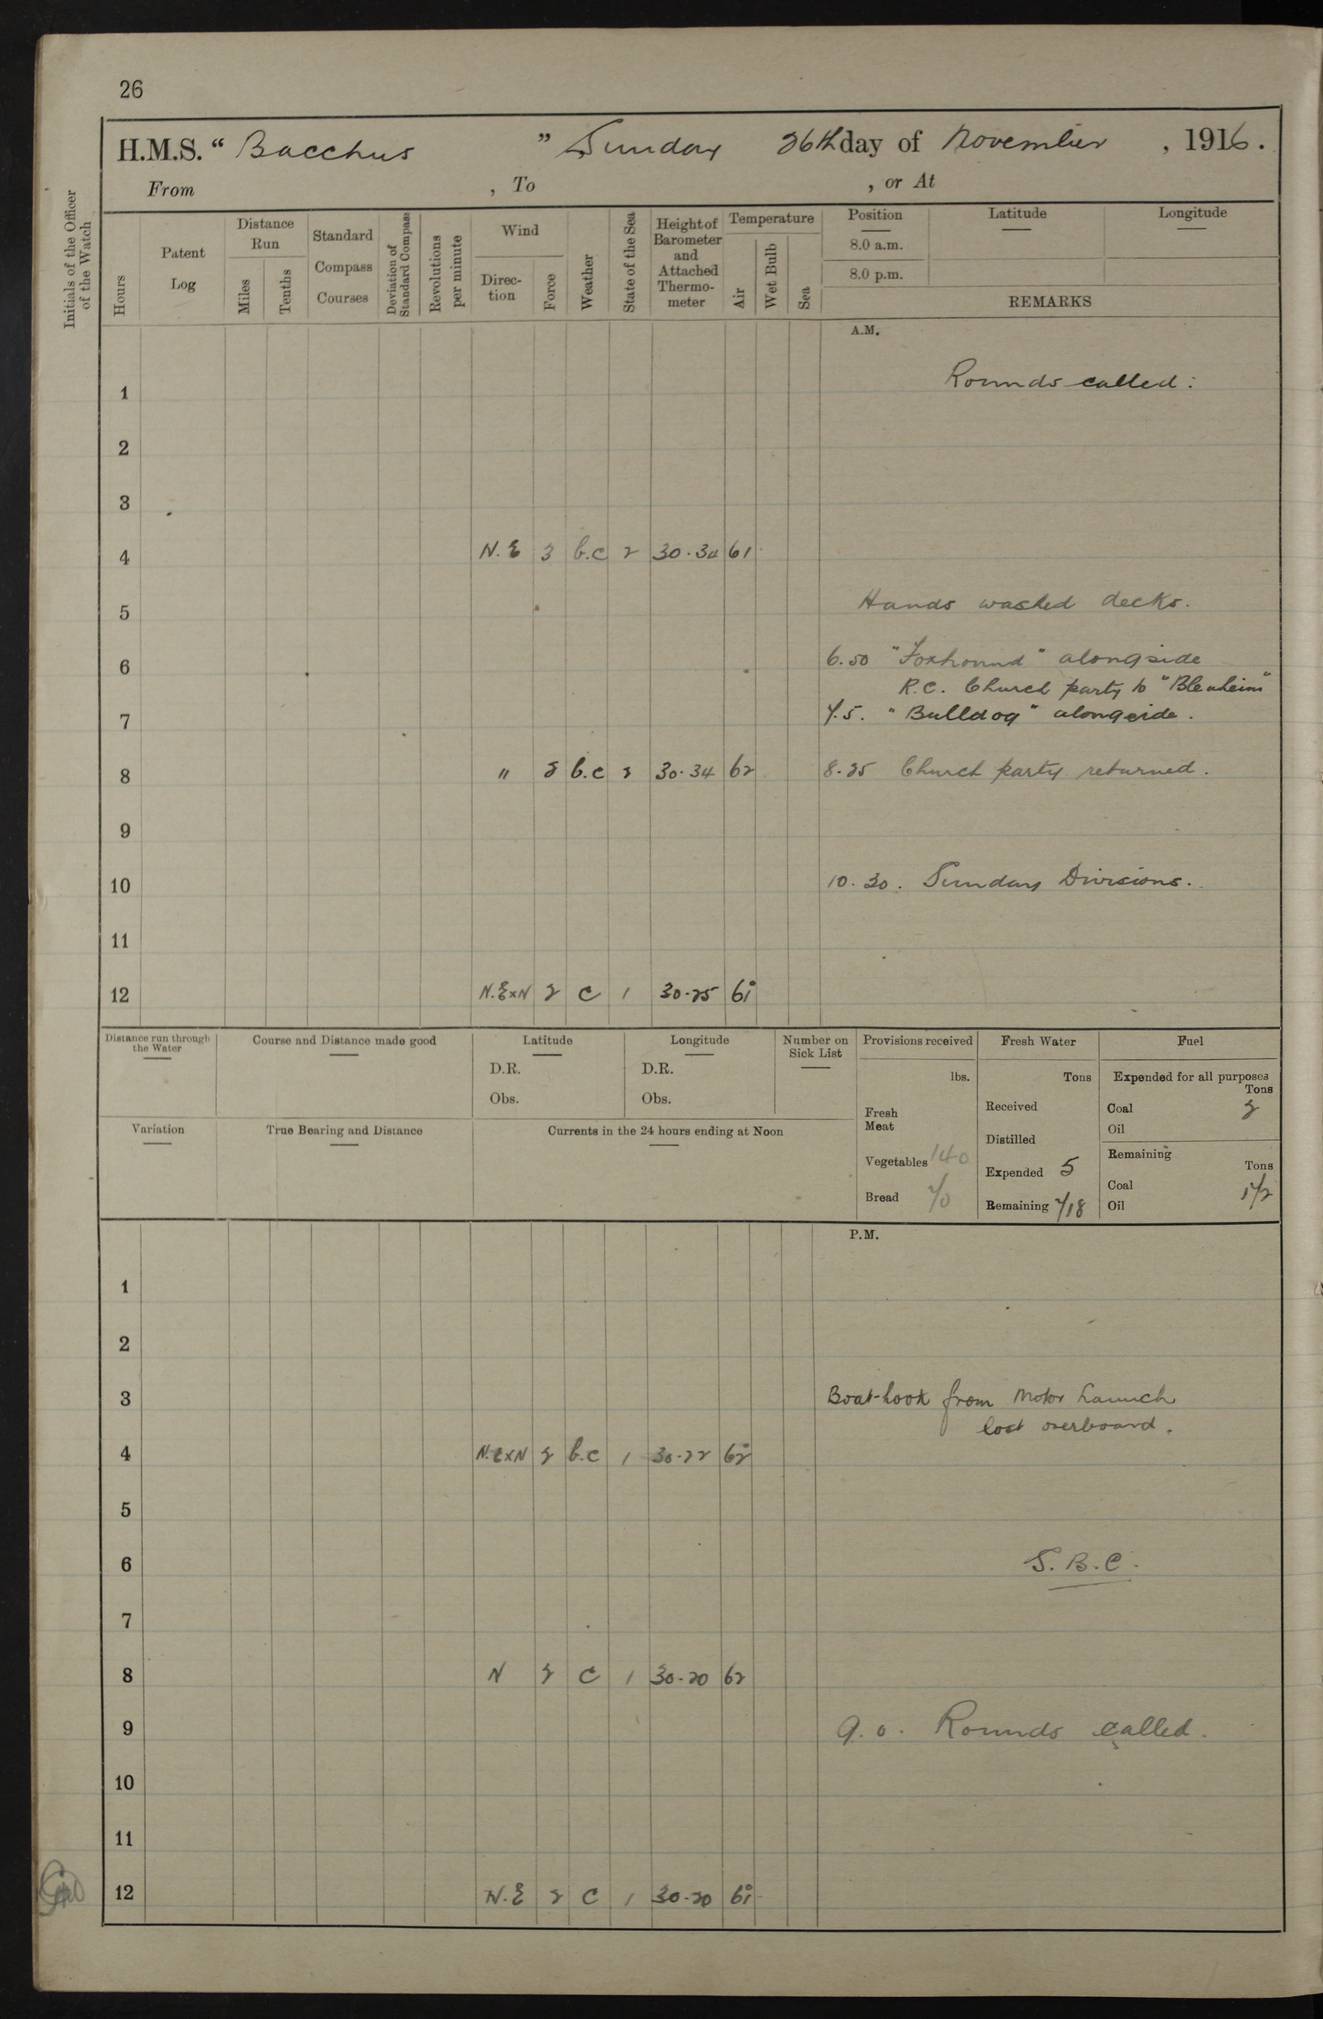 26
H.M.S. “ Bacchus ” Sunday 26th day of November , 1916.
From , To , or At
Initials of the Officer of the Watch
Hours
Patent Log
Distance Run
Miles
Tenths
Standard Compass Courses
Deviation of Standard Compass
Revolutions per minute
Wind
Direction
Force
Weather
State of the Sea
Height of Barometer and Attached Thermometer
Temperature
Air
Wet Bulb
Sea
Position Latitude Longitude
8.0 a.m.
8.0 p.m.
REMARKS
A.M.
1 Rounds called:
2
3
4 N.E 3 b.c 2 30.34 61
5 Hands washed decks.
6 6.50 "Foxhound" alongside
R.C. Church party to "Blenheim"
7 7.5. "Bulldog" alongside.
8 " b.c 30.34 62 8.25 Church party returned.
9
10 10.30. Sunday Divisions.
11
12 N.ExN 2 c 1 30.25 61
Distance run through the Water
Course and Distance made good
Latitude
D.R.
Obs.
Longitude
D.R.
Obs.
Number on Sick List
Provisions received
lbs.
Fresh Meat
Vegetables 140
Bread 70
Fresh Water
Tons
Received
Distilled
Expended 5
Remaining 718
Fuel
Expended for all purposes
Tons
Coal 2
Oil
Remaining
Tons
Coal 172
Oil
Variation
True Bearing and Distance
Currents in the 24 hours ending at Noon
P.M.
1
2
3 Boat-hook from Motor Launch
lost overboard.
4 N.ExN 2 b.c 1 30.22 62
5
6 S.B.C.
7
8 N 2 c 1 30.20 62
9 9.0. Rounds called.
10
11
12 N.E 2 c 1 30.20 61